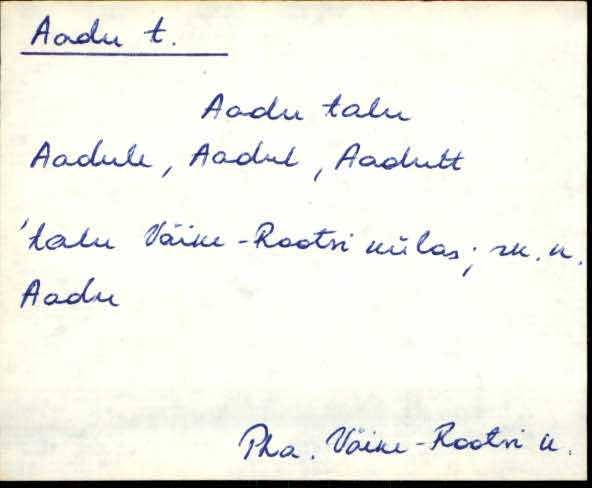 Aadu t.
Aadu talu
Aadule, Aadul, Aadult
'talu Väike-Rootsi külas; rk. k.
Aadu
Pha. Väike-Rootsi k.